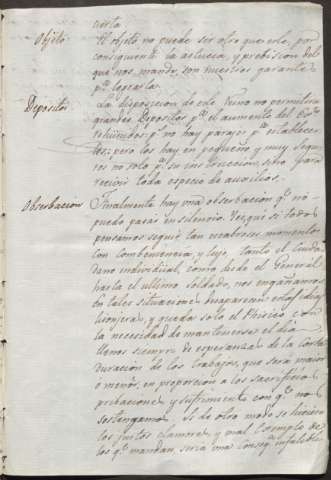 cierta.
Objeto El objeto no puede ser otro que este, por
consiguiente la astucia, y prebision del
que nos mande, son nuestros garantes
pª lograrla.
Depositos La disposicion de este Reino no permitirá
grandes Depositos pª el aumento del
no hay parajes pª establecer
los; pero los hay en pequeño y muy segu
res no solo pª su instruccion, sino para
recivir toda especie de auxilios.
Observacion Finalmente hay una observacion qº no
puedo pasar en silencio. Ves que si todos
pensamos seguir tan momentos
con combeniencia, y lujo, tanto el Ciuda
dano individual, como desde el General
hasta el ultimo soldado, nos engañamos
En tales situaciones desaparecen
y queda solo el Phisico con
la necesidad de mantenerse el dia
llenos siempre de esperanza de la corta
duracion de los trabajos, que será maior
ó menor, en proporcion á los sacrificios
pribaciones y sufrimiento con qº nos
sostengamos. Si de otro modo se hiciese
los justos clamores, y mal exemplo de
los qº mandan, seria una infalible